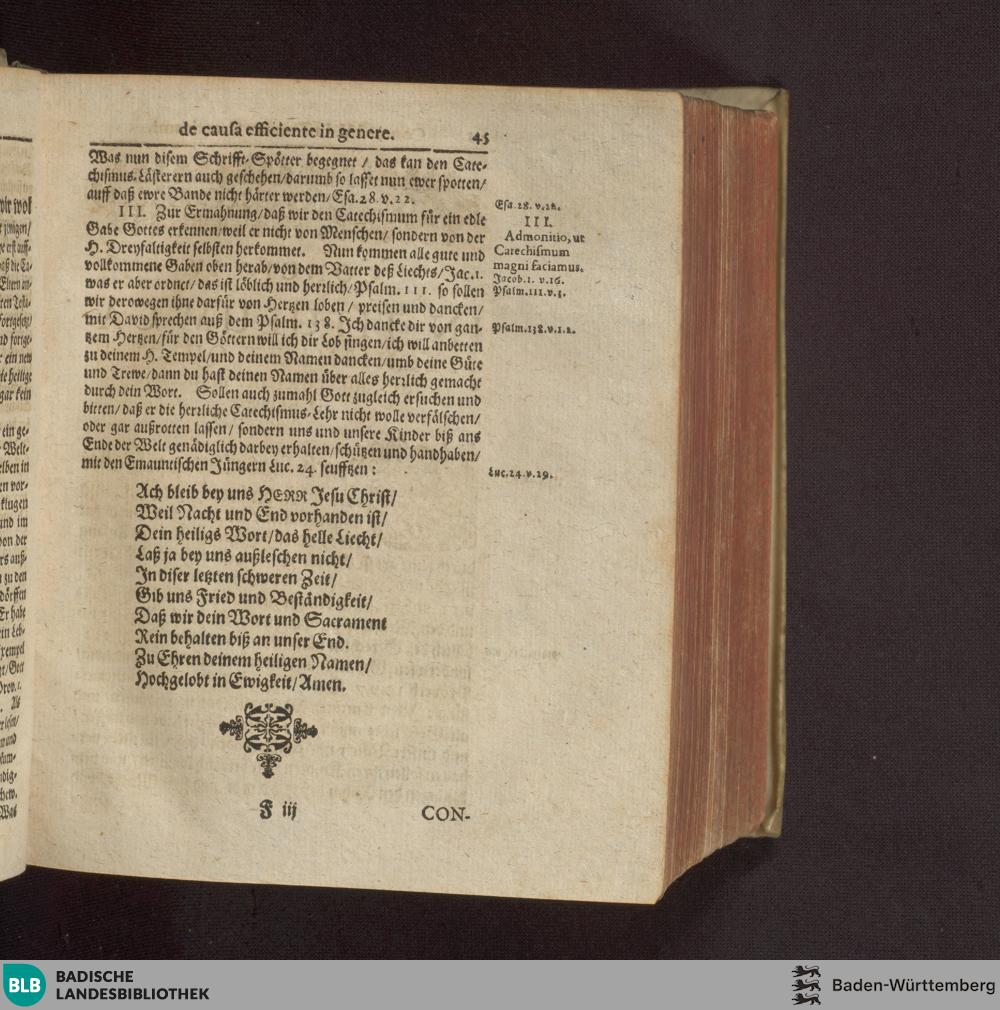 de causa efficiente in genere. 45
Was nun disem Schrifft-Spötter begegnet / das kan den Cate-
chismus-Lästerern auch geschehen/darumb so lasset nun ewer spotten/
auff daß ewre Bande nicht härter werden/Esa. 28. v. 22.
III. Zur Ermahnung/daß wir den Catechismum für ein edle
Gabe Gottes erkennen/weil er nicht von Menschen/ sondern von der
H. Dreyfaltigkeit selbsten herkommet. Nun kommen alle gute und
vollkommene Gaben oben herab/von dem Vatter deß Liechts/Jac. 1.
was er aber ordnet/das ist löblich und herrlich/Psalm. 111. so sollen
wir derowegen ihne darfür von Hertzen loben/ preisen und dancken/
mit David sprechen auß dem Psalm. 138. Ich dancke dir von gan-
tzem Hertzen/für den Göttern will ich dir Lob singen/ich will anbetten
zu deinem H. Tempel/und deinem Namen dancken/umb deine Güte
und Trewe/dann du hast deinen Namen über alles herrlich gemacht
durch dein Wort. Sollen auch zumahl Gott zugleich ersuchen und
bitten/daß er die herrliche Catechismus-Lehr nicht wolle verfälschen/
oder gar außrotten lassen/ sondern uns und unsere Kinder biß ans
Ende der Welt genädiglich darbey erhalten/schützen und handhaben/
mit den Emauntischen Jüngern Luc. 24. seufftzen :
Ach bleib bey uns HERR Jesu Christ/
Weil Nacht und End vorhanden ist/
Dein heiligs Wort/das helle Liecht/
Laß ja bey uns außleschen nicht/
In diser letzten schweren Zeit/
Gib uns Fried und Beständigkeit/
Daß wir dein Wort und Sacrament
Rein behalten biß an unser End.
Zu Ehren deinem heiligen Namen/
Hochgelobt in Ewigkeit/Amen.
F iij CON-
Esa. 28. v. 22.
III.
Admonitio, ut
Catechismum
magni faciamus.
Jacob. 1. v. 16.
Psalm. 111. v. 3.
Psalm. 138. v. 1. 2.
Luc. 24. v. 29.
BLB BADISCHE
LANDESBIBLIOTHEK
Baden-Württemberg